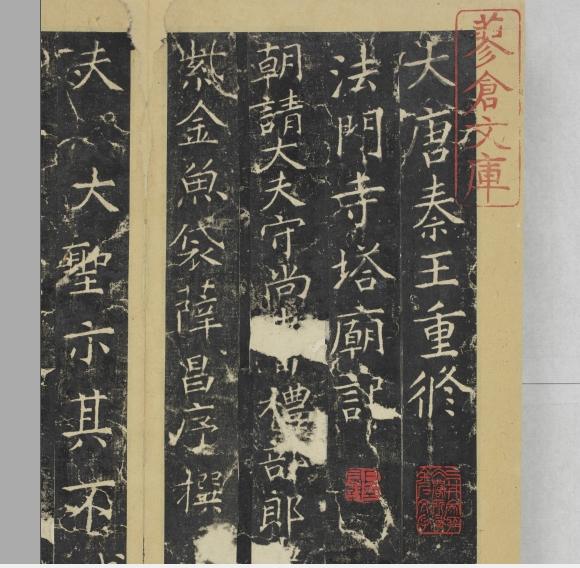 蓼倉文庫
大唐秦王重修
法門寺塔廟記
朝請大夫守尚禮部郎
紫金魚袋薛昌序撰
夫大聖示其不